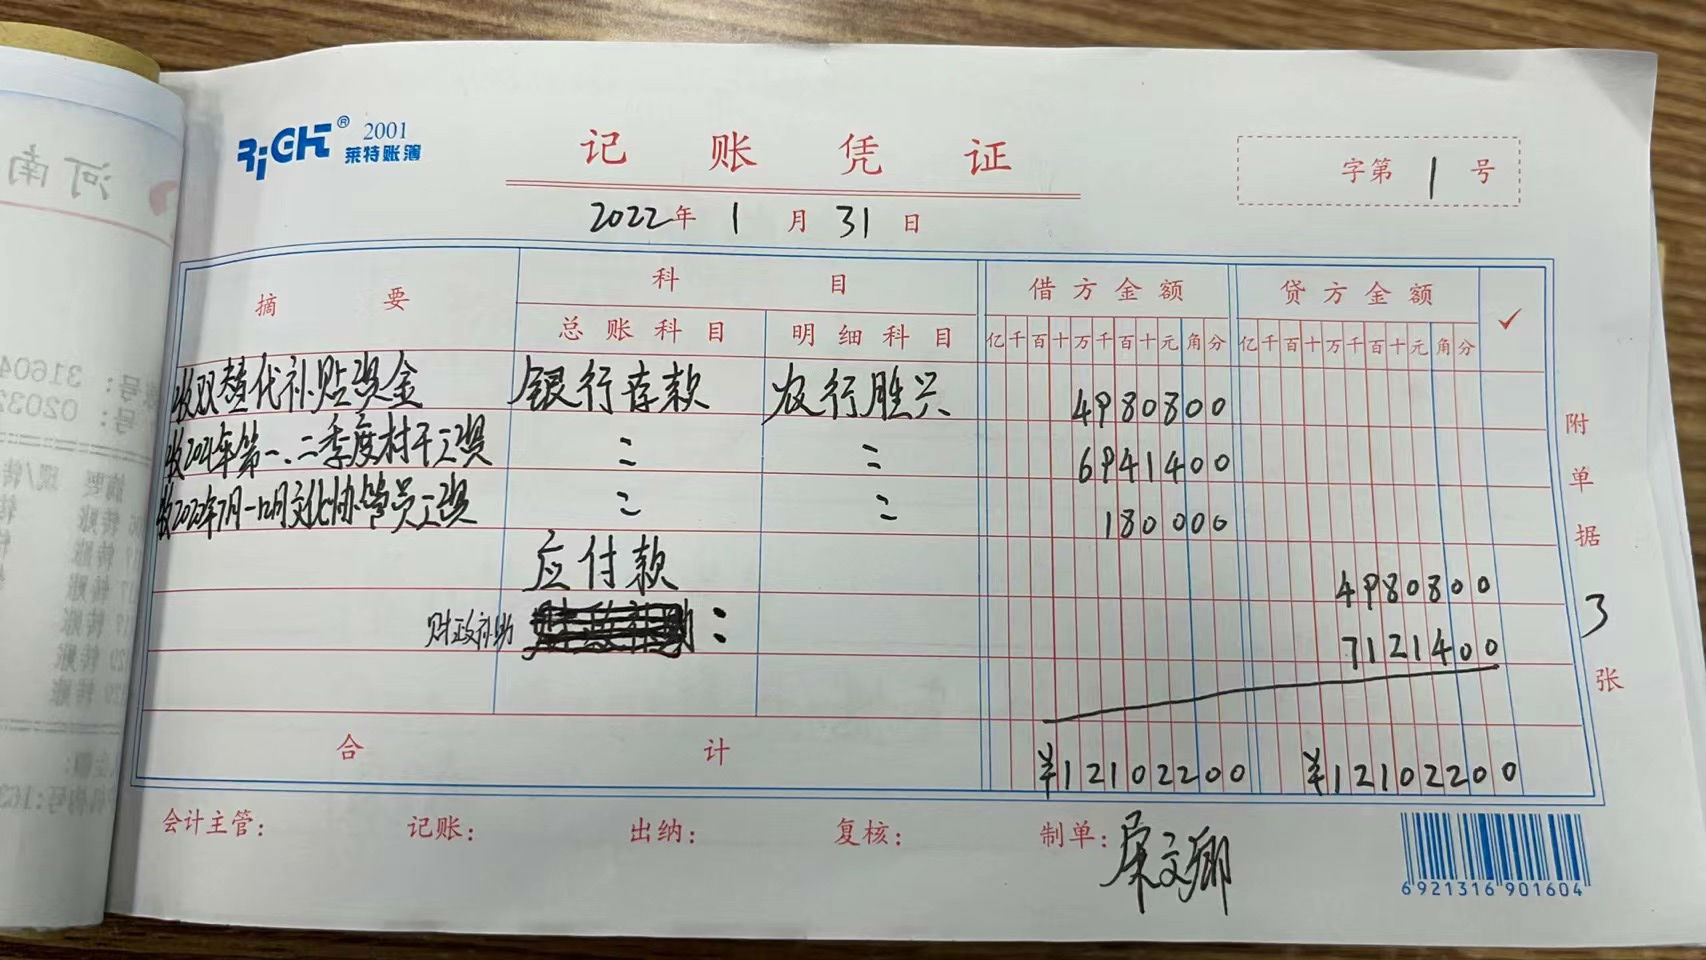 RiGHT® 2001
莱特账簿
记账凭证
字第 1 号
2022年 1 月 31 日
摘要 科目 借方金额 贷方金额 ✓
总账科目 明细科目 亿千百十万千百十元角分 亿千百十万千百十元角分
收双替代补贴资金 银行存款 农行胜兴 4980800
收2021年第一、二季度村干工资 〃 〃 6941400
收2022年7月-12月文化协管员工资 〃 〃 180000
应付款 4980800
财政补助 : 7121400
合计 ¥12102200 ¥12102200
附单据 3 张
会计主管: 记账: 出纳: 复核: 制单:
6 921316 901604
河南